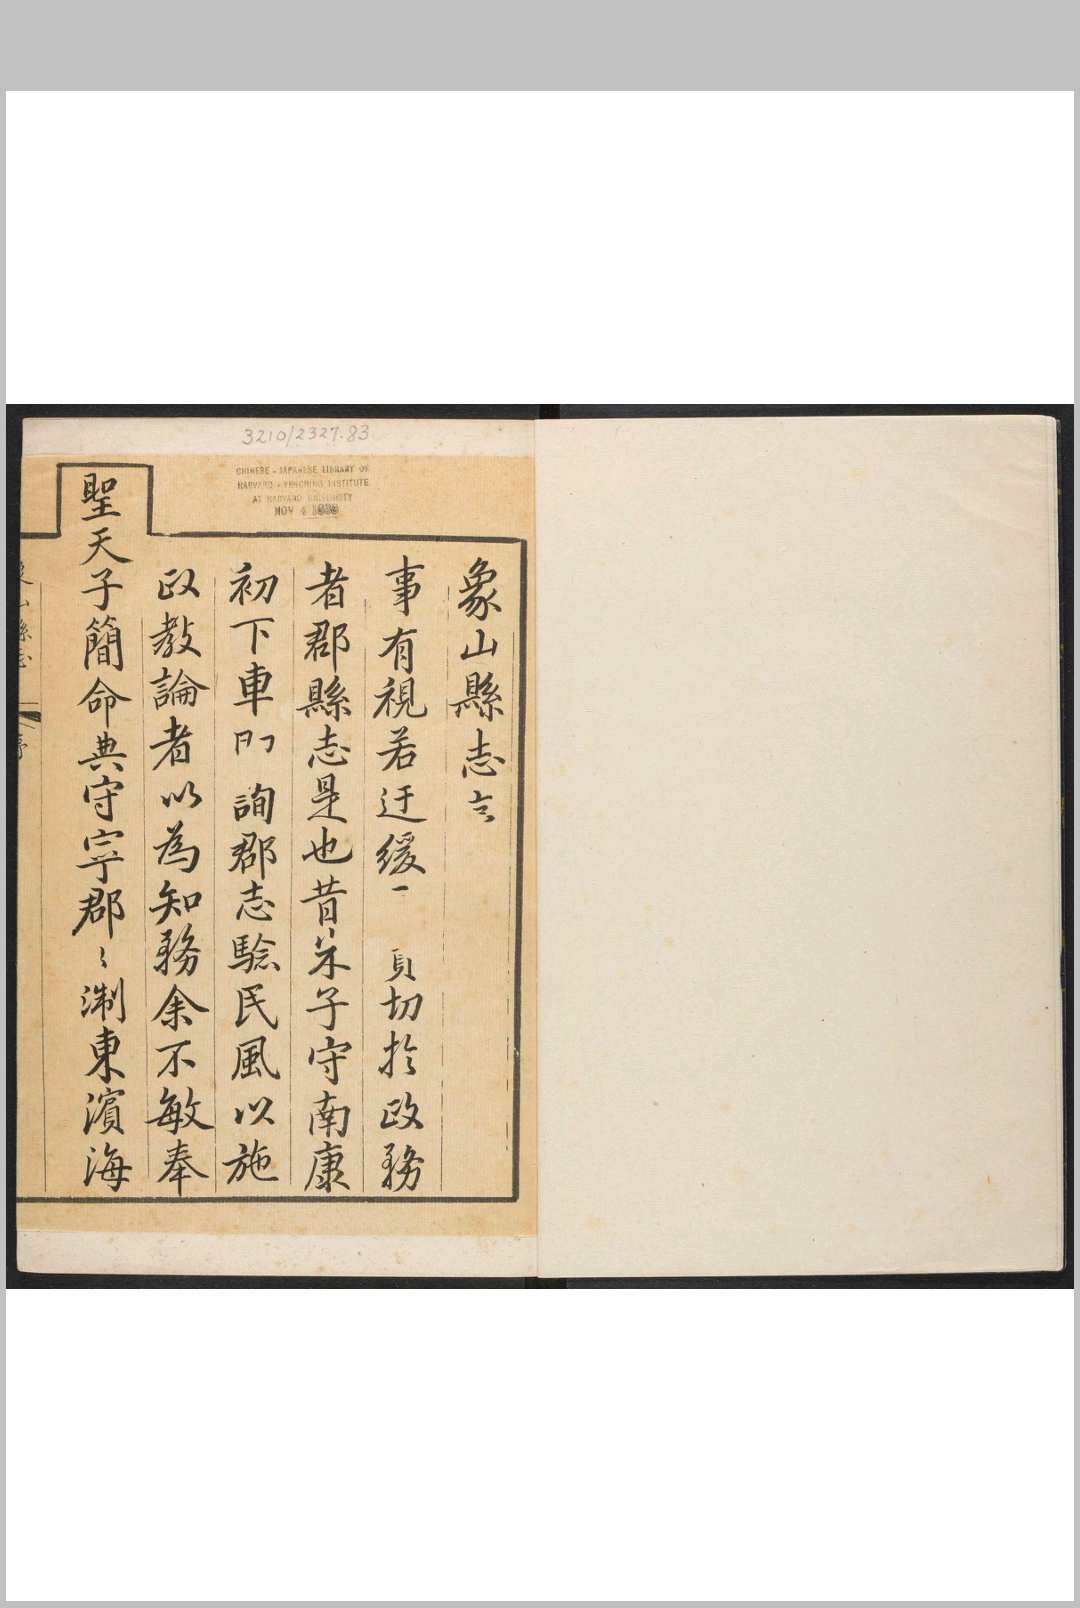 3210/2327.83
CHINESE - JAPANESE LIBRARY OF
HARVARD - YENCHING INSTITUTE
AT HARVARD UNIVERSITY
NOV 4
象山縣志
事有視若迂緩 切於政務
者郡縣志是也昔朱子守南康
初下車 詢郡志驗民風以施
政教論者以為知務余不敏奉
聖天子簡命典守寧郡〻淛東濱海